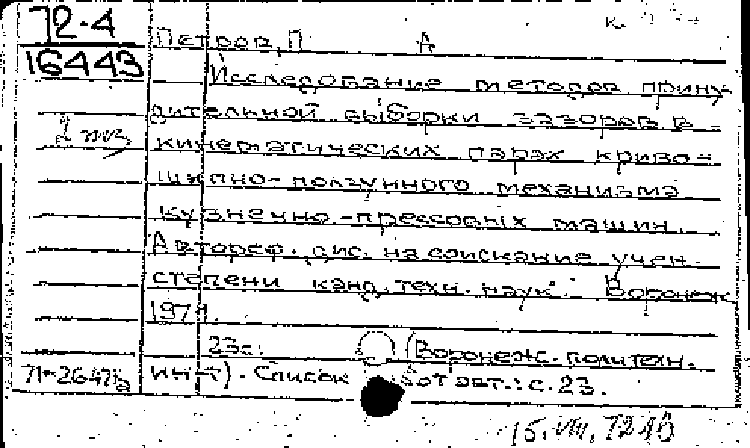 72-4
16443
2 экз
Петров, П А
Исследование методов прину-
дительной выборки зазоров в
кинематических парах криво-
шипно-ползунного механизма
кузнечно-прессовых машин.
Автореф. дис. на соискание учен.
степени канд. техн. наук. Воронеж
1971.
23 с. (Воронеж. политехн.
ин-т). Список работ авт.: с. 23.
15.VIII.72